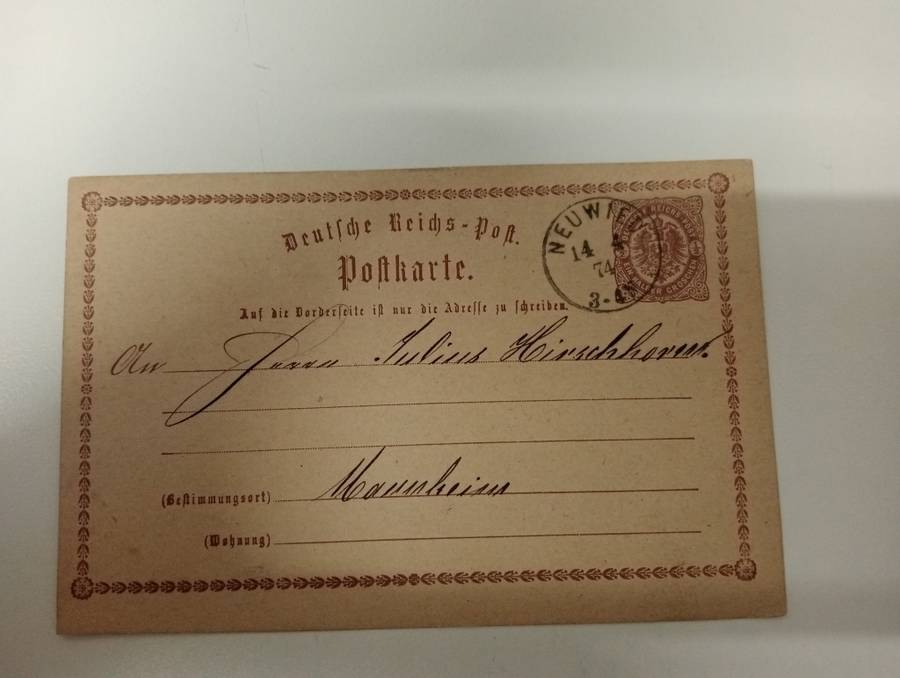 Deutsche Reichs-Post.
Postkarte.
NEUWIED
14
74
3-4
Auf die Vorderseite ist nur die Adresse zu schreiben.
An Herrn Julius Hirschhorn.
(Bestimmungsort) Mannheim
(Wohnung)